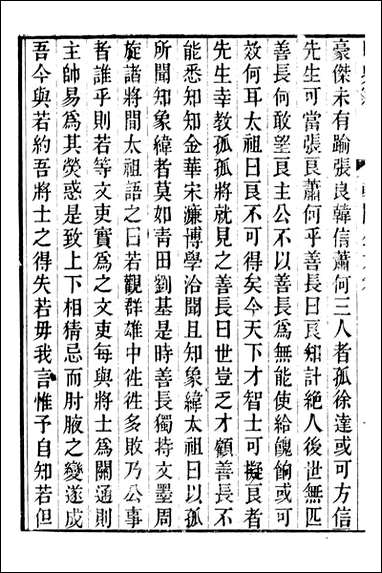 豪傑未有踰張良韓信蕭何三人者孤徐達或可方信
先生可當張良蕭何乎善長曰良籌計絕人後世無匹
善長何敢望良主公不以善長爲無能使給餽餉或可
效何耳太祖曰良不可得矣今天下才智士可擬良者
先生幸教孤孤將就見之善長曰世豈乏才顧善長不
能悉知知金華宋濂博學洽聞且知象緯太祖曰以孤
所聞知象緯者莫如青田劉基是時善長獨持文墨周
旋諸將間太祖語之曰若觀群雄中徃徃多敗乃公事
者誰乎則若等文吏實爲之文吏每與將士爲關通則
主帥易爲其熒惑是致上下相猜忌而肘腋之變遂成
吾今與若約吾將士之得失若毋我言惟予自知若但